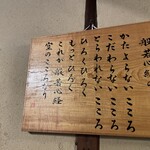 般若心経
かたよらない こころ
こだわらない こころ
とらわれない こころ
ひろく ひろく
もっと ひろく
これが 般若心経
空のこころなり